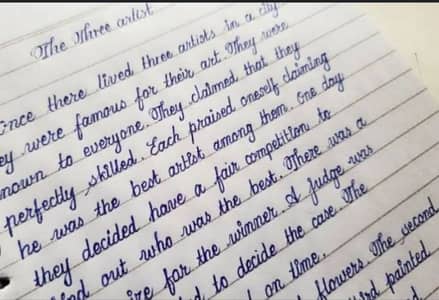 The Three artist
Once there lived three artists in a city
ey were famous for their art. They were
nown to everyone. They claimed that they
perfectly skilled. Each praised oneself claiming
he was the best artist among them. One day
they decided have a fair competition to
ind out who was the best. There was a
ire for the winner. A judge was
d to decide the case. The
on time.
flowers. The second
painted